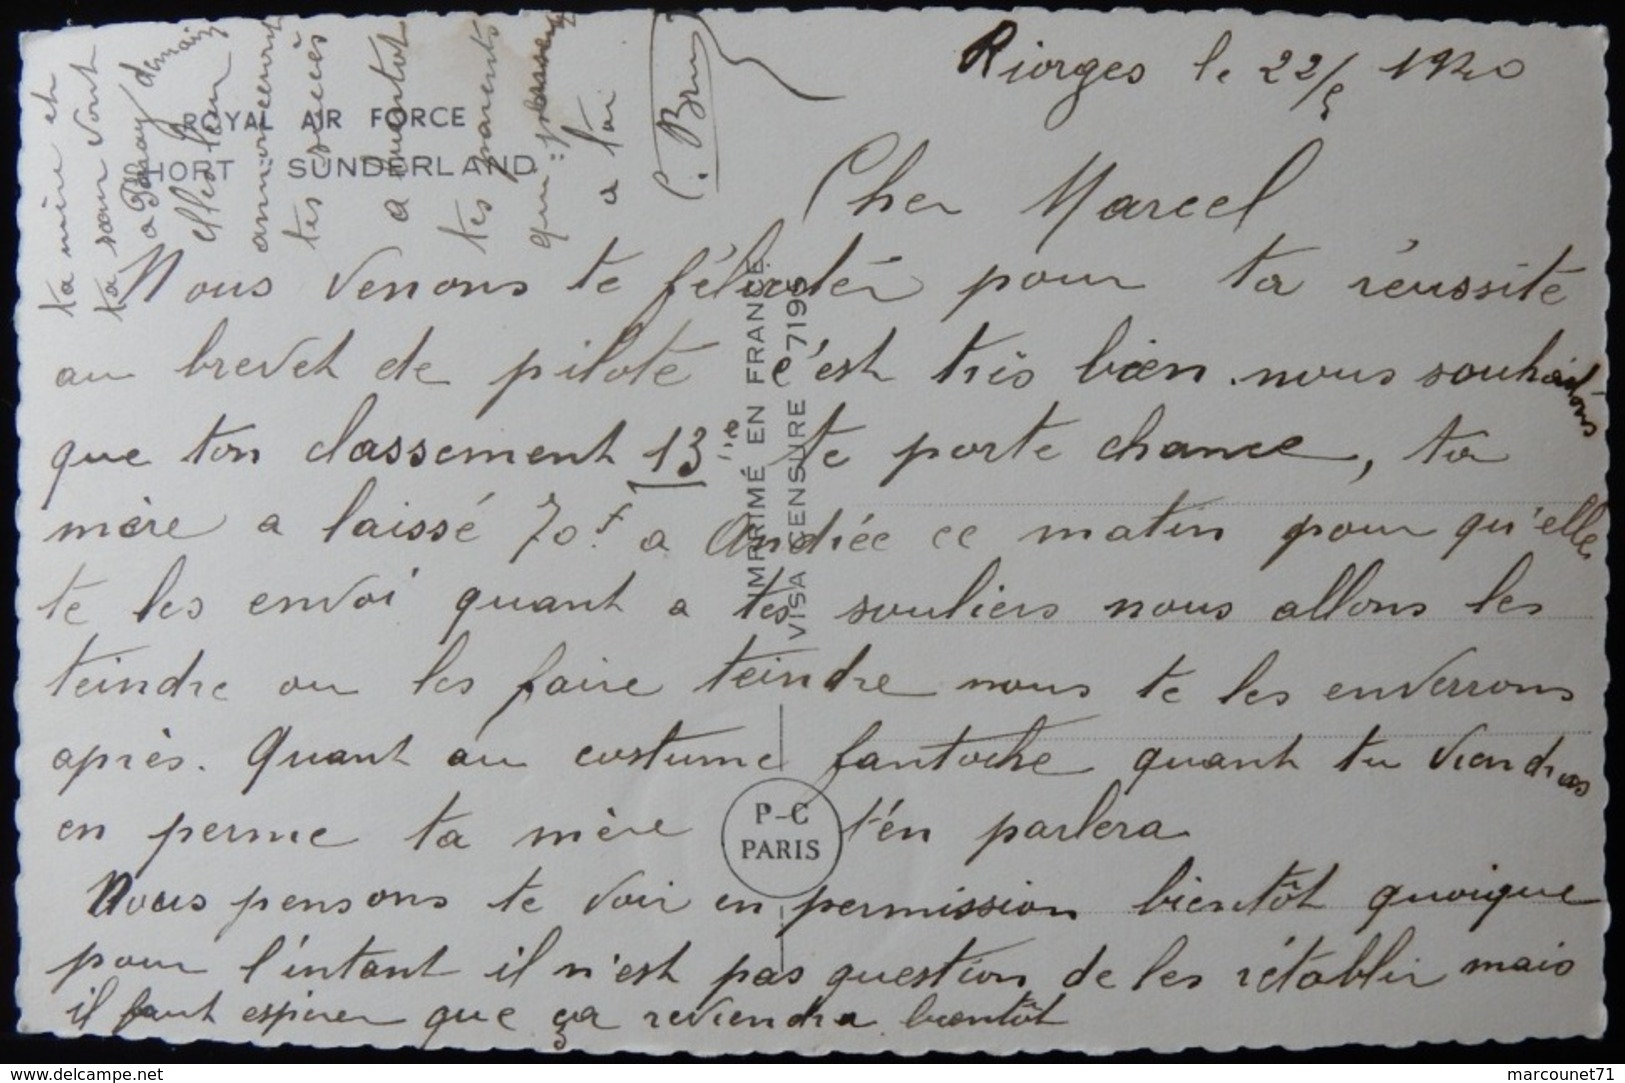 Riorges le 22/5 1940
Cher Marcel
Nous venons te féliciter pour ta réussite
au brevet de pilote c'est très bien. nous souhaitons
que ton classement 13ie te porte chance, ta
mère a laissé 70f. a Andrée ce matin pour qu'elle
te les envoi quant a tes souliers nous allons les
teindre ou les faire teindre nous te les enverrons
après. Quant au costume fantoche quant tu viendras
en perme ta mère t'en parlera
Nous pensons te voir en permission bientôt quoique
pour l'intant il n'est pas question de les rétablir mais
il faut espérer que ça reviendra bientôt
ta mère et
ta sœur vont
a demain
elles
annonceront
tes succès
a
tes parents
qui
a toi
C. Brun
ROYAL AIR FORCE
SHORT SUNDERLAND
IMPRIMÉ EN FRANCE.
VISA CENSURE 7195
P-C
PARIS
www.delcampe.net
marcounet71